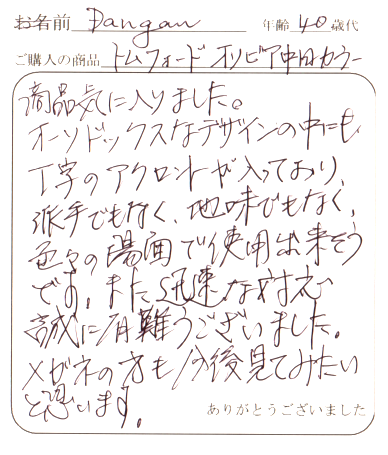 お名前 Dangan 年齢 40 歳代
ご購入の商品 トムフォード オリビア中日カラー
商品気に入りました。
オーソドックスなデザインの中にも
T字のアクロントが入っており、
派手でもなく、地味でもなく、
色々の場面で使用出来そう
です。また、迅速な対応
誠に有難うございました。
メガネの方も今後見てみたい
と思います。
ありがとうございました